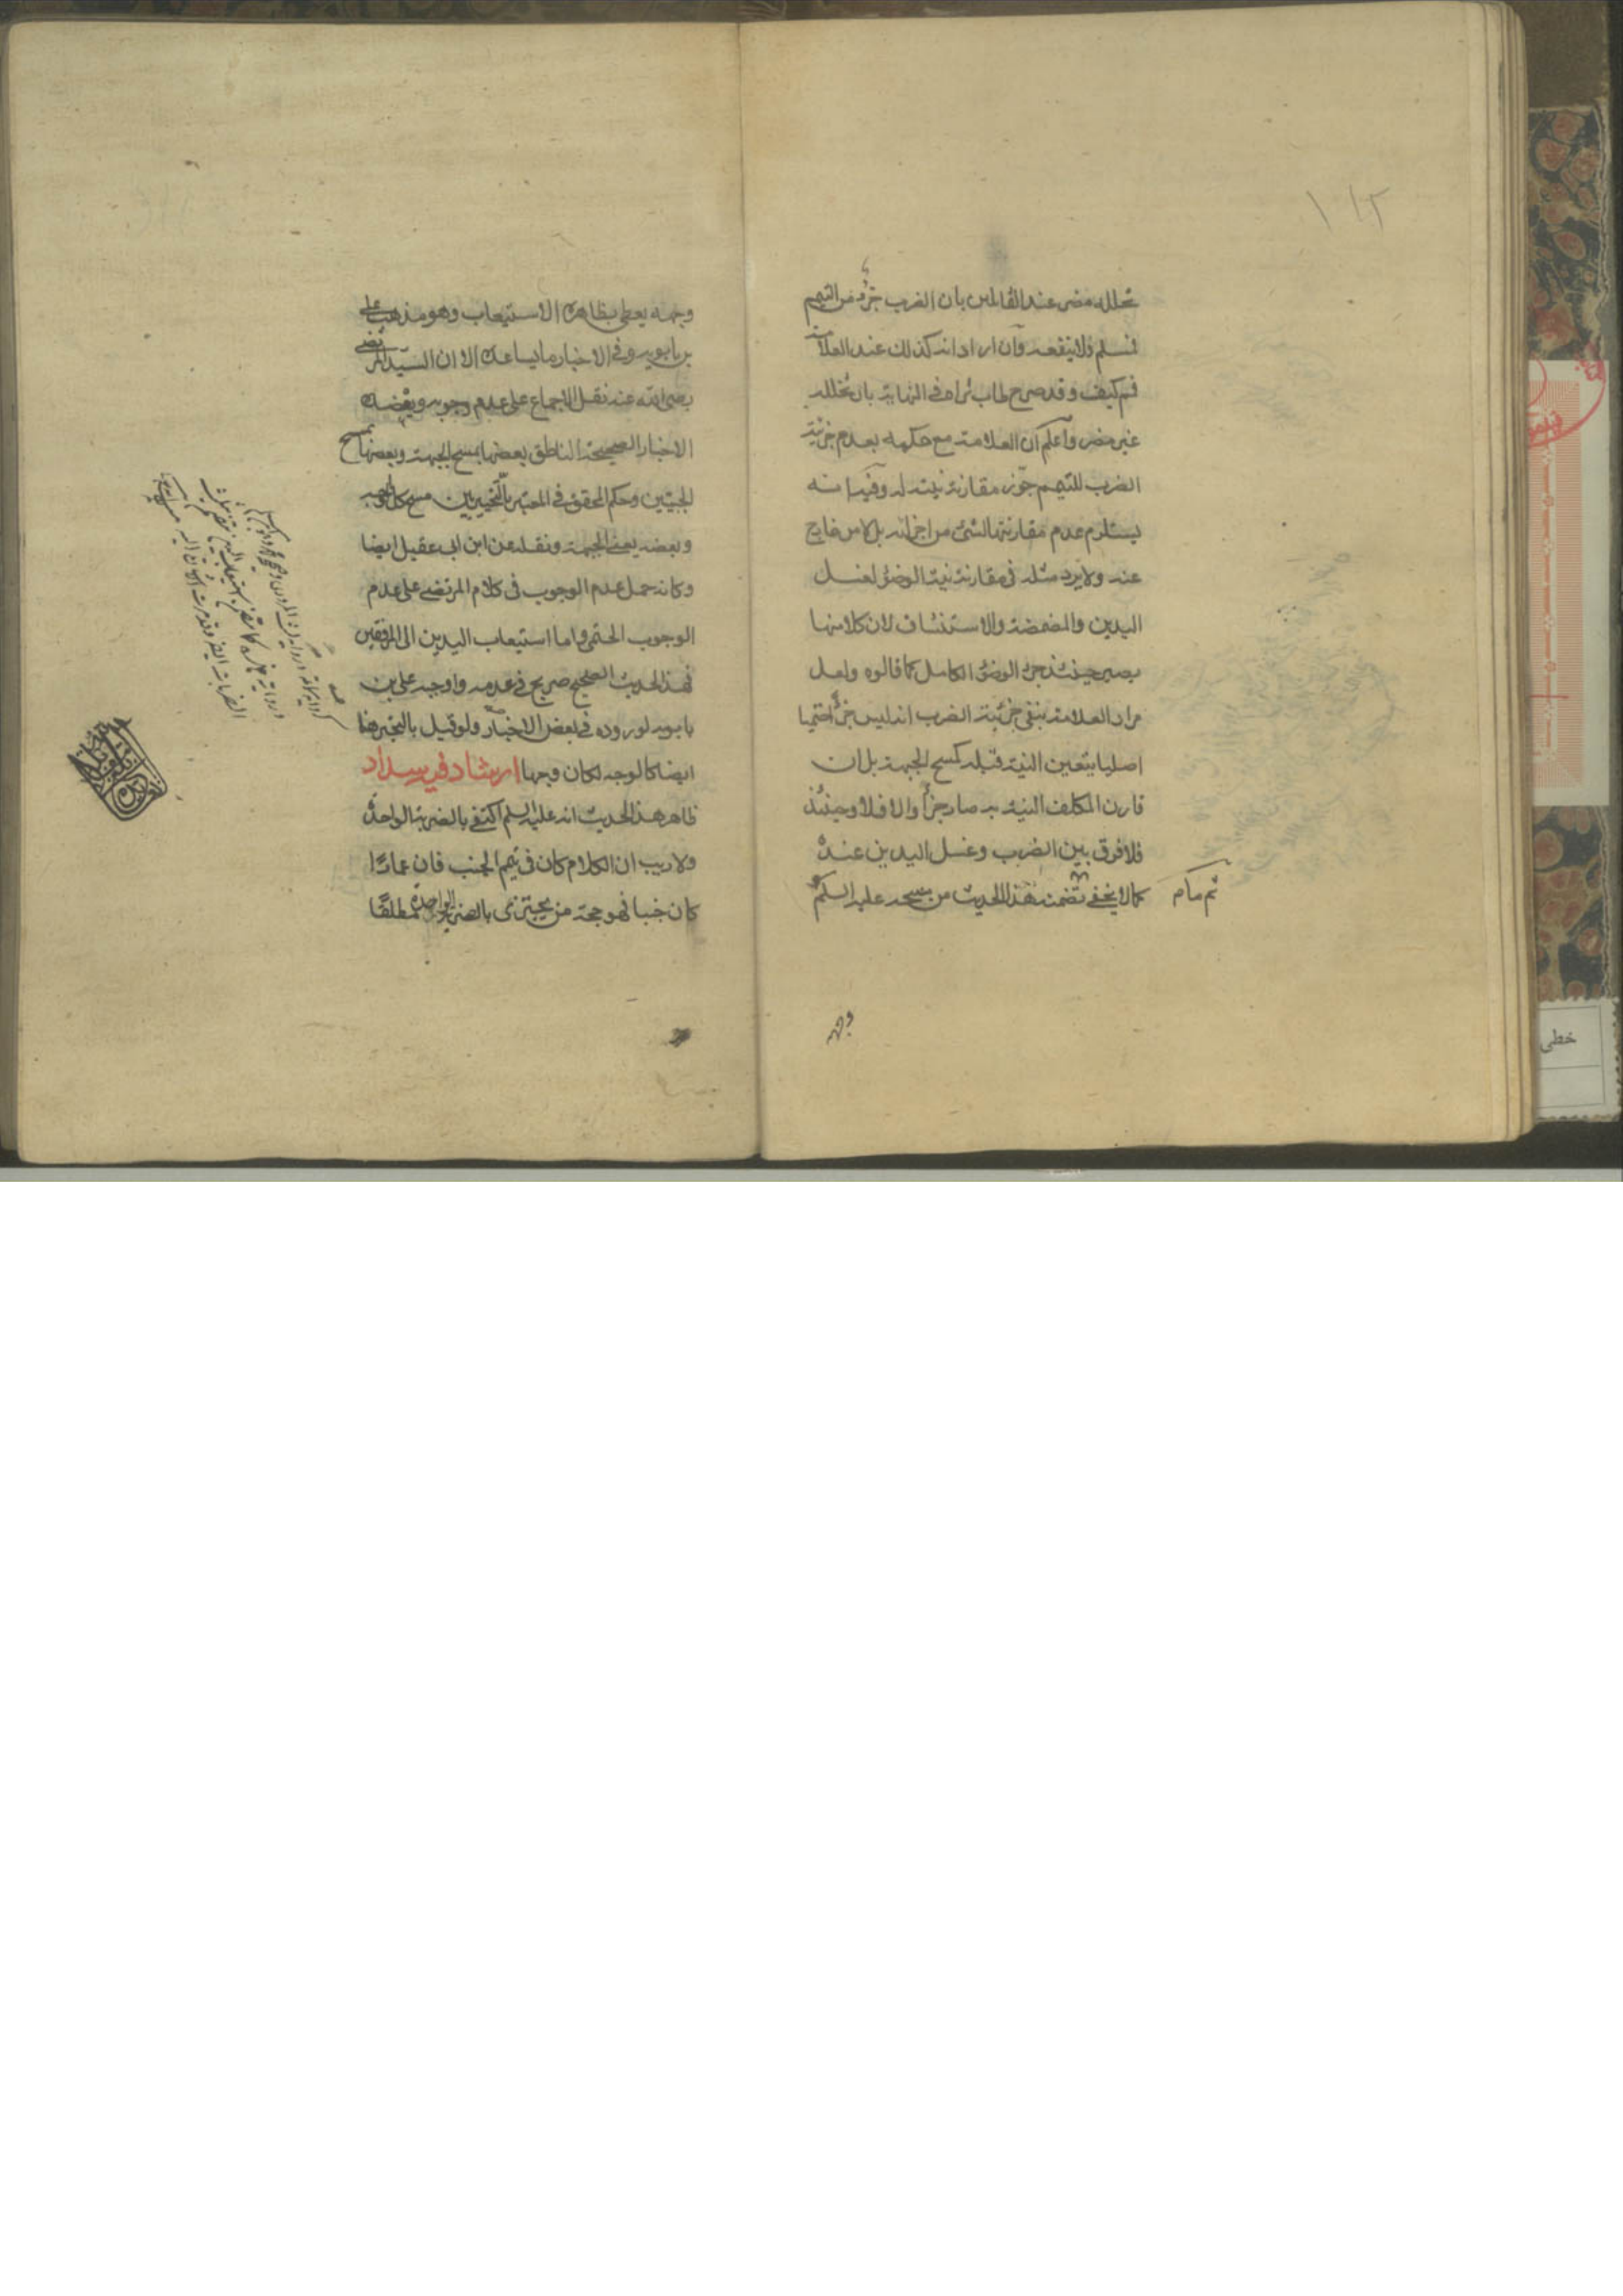 ١١٢
تخلله مضر عند القائلين بان الضرب جزؤ من التيمم
فمسلم ولا ينفعه وآن اراد انه كذلك عند العلامة
فم كيف وقد صرح طاب ثراه في النهاية بان تخلله
غير مضر وآعلم ان العلامة مع حكمه بعدم جزئية
الضرب للتيمم جوز مقارنة نيته له وفيه انه
يستلزم عدم مقارنتها لشئ من اجزائه بل لامر خارج
عنه ولا يرد مثله في مقارنة نية الوضوء لغسل
اليدين والمضمضة والاستنشاق لان كلا منها
يصير حينئذ جزء الوضوء الكامل كما قالوه ولعل
مراد العلامة بنفي جزئية الضرب انه ليس جزءًا حتميا
اصليا يتعين النية قبله كمسح الجبهة بل ان
قارن المكلف النية به صار جزءًا والا فلا وحينئذ
فلا فرق بين الضرب وغسل اليدين عنده
كما لا يخفى تضمنه هذا الحديث من مسحه عليه السلم
ثم ما م
وجهه
وجهه يعطي بظاهره الاستيعاب وهو مذهب علي
بن بابويه وفي الاخبار ما يساعده الا ان السيد المرتضى
رضي الله عنه نقل الاجماع على عدم وجوبه ويعضده
الاخبار الصحيحة الناطق بعضها بمسح الجبهة وبعضها بمسح
الجبينين وحكم المحقق في المعتبر بالتخيير بين مسح كل الوجه
وبعضه يعني الجبهة ونقله عن ابن ابي عقيل ايضا
وكانه حمل عدم الوجوب في كلام المرتضى على عدم
الوجوب الحتمي واما استيعاب اليدين الى المرفقين
فهذا الحديث الصحيح صريح في عدمه واوجبه علي بن
بابويه لوروده في بعض الاخبار ولو قيل بالتخيير هنا
ايضا كالوجه لكان وجها ارشاد فيه سداد
ظاهر هذا الحديث انه عليه السلم اكتفى بالضربة الواحدة
ولا ريب ان الكلام كان في تيمم الجنب فان عمارًا
كان جنبا فهو حجة من يجتزى بالضربة الواحدة مطلقًا